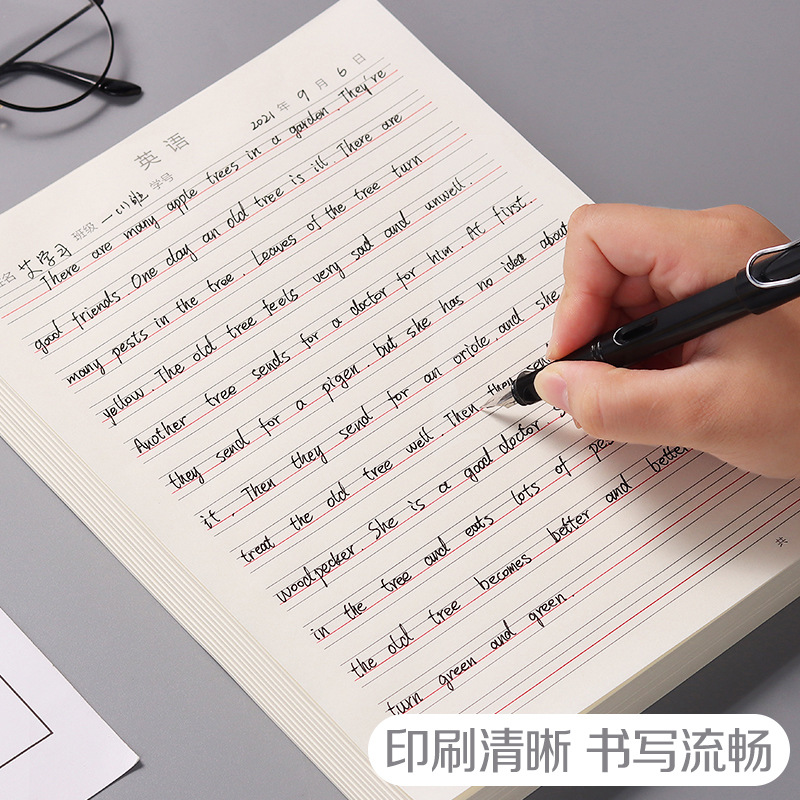 英语
2021年9月6日
姓名 艾学习 班级 一(1)班 学号
There are many apple trees in a garden. They're
good friends. One day an old tree is ill. There are
many pests in the tree. Leaves of the tree turn
yellow. The old tree feels very sad and unwell.
Another tree sends for a doctor for him. At first.
they send for a pigen. but she has no idea about
it. Then they send for an oriole. and she
treat the old tree well. Then they
woodpecker. She is a good doctor
in the tree and eats lots of
the old tree becomes better and
turn green and green.
共
印刷清晰 书写流畅